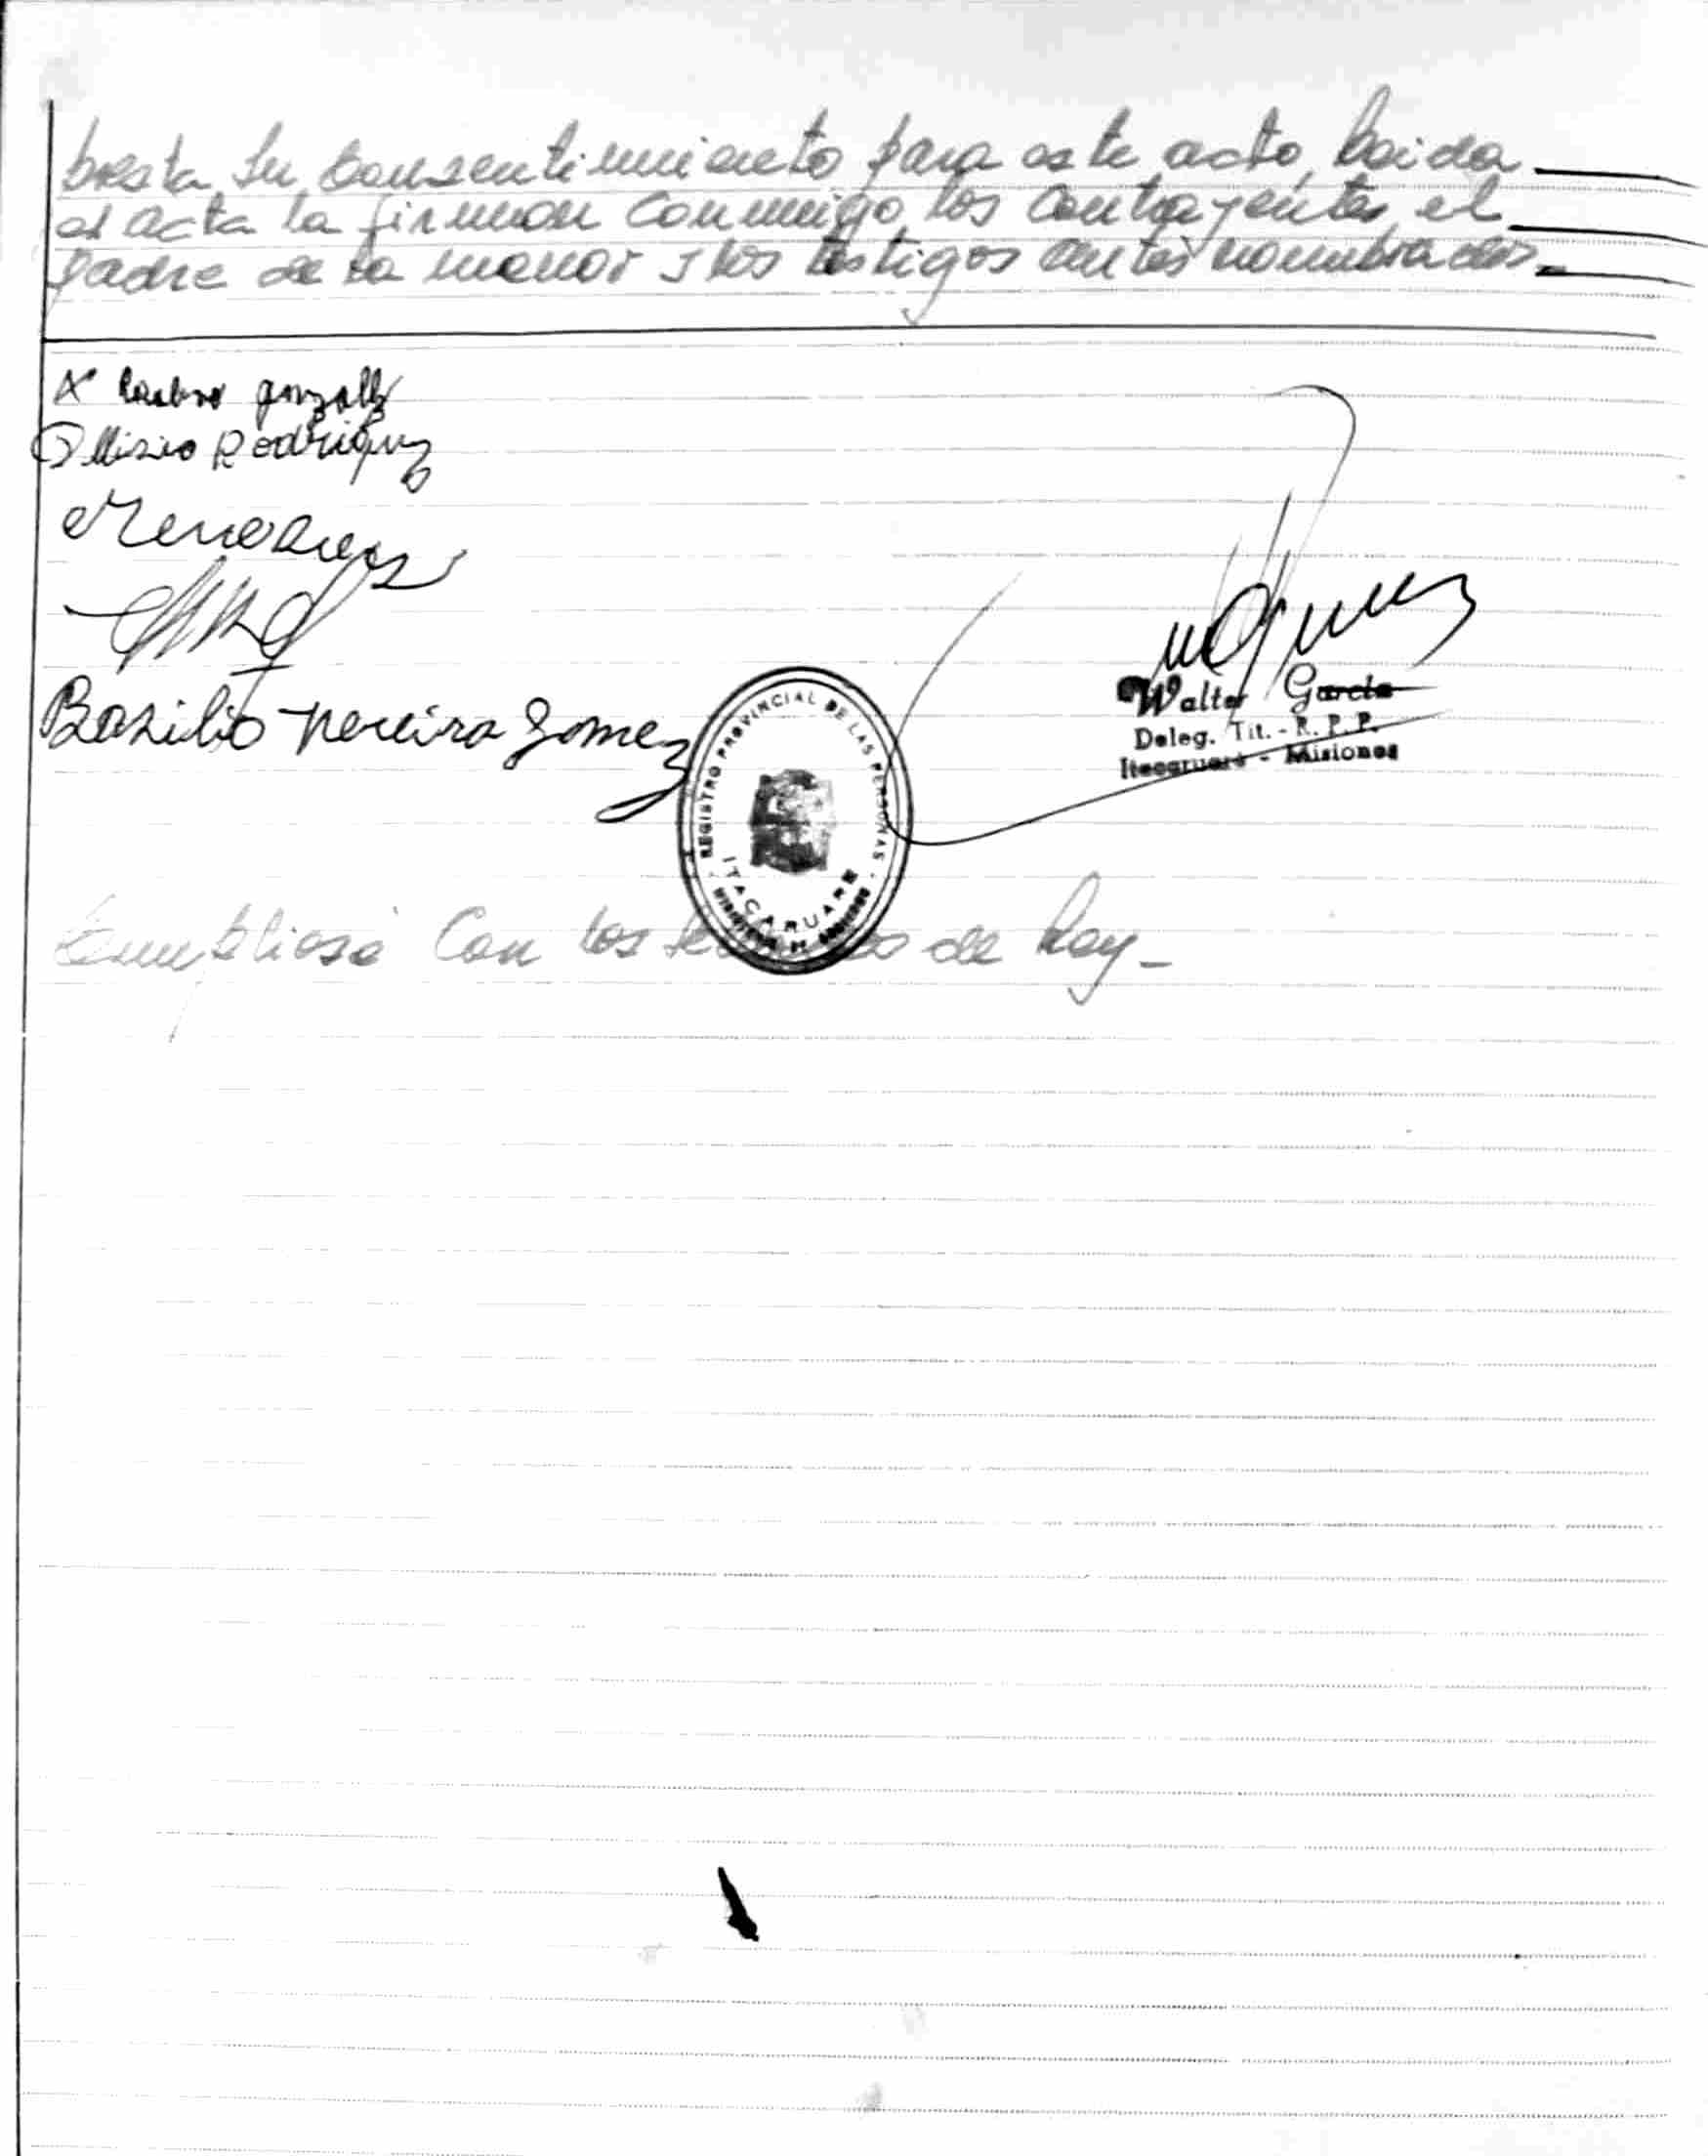 presta su consentimiento para este acto, leida
el acta la firman conmigo, los contrayentes, el
padre de la menor y los testigos antes nombrados.
X gonzalez
Rodriguez
Basilio Pereira Gomez
Walter García
Deleg. Tit. - R. P. P.
Itacaruaré - Misiones
REGISTRO PROVINCIAL DE LAS PERSONAS
ITACARUARE
Cumpliose con los de hoy-